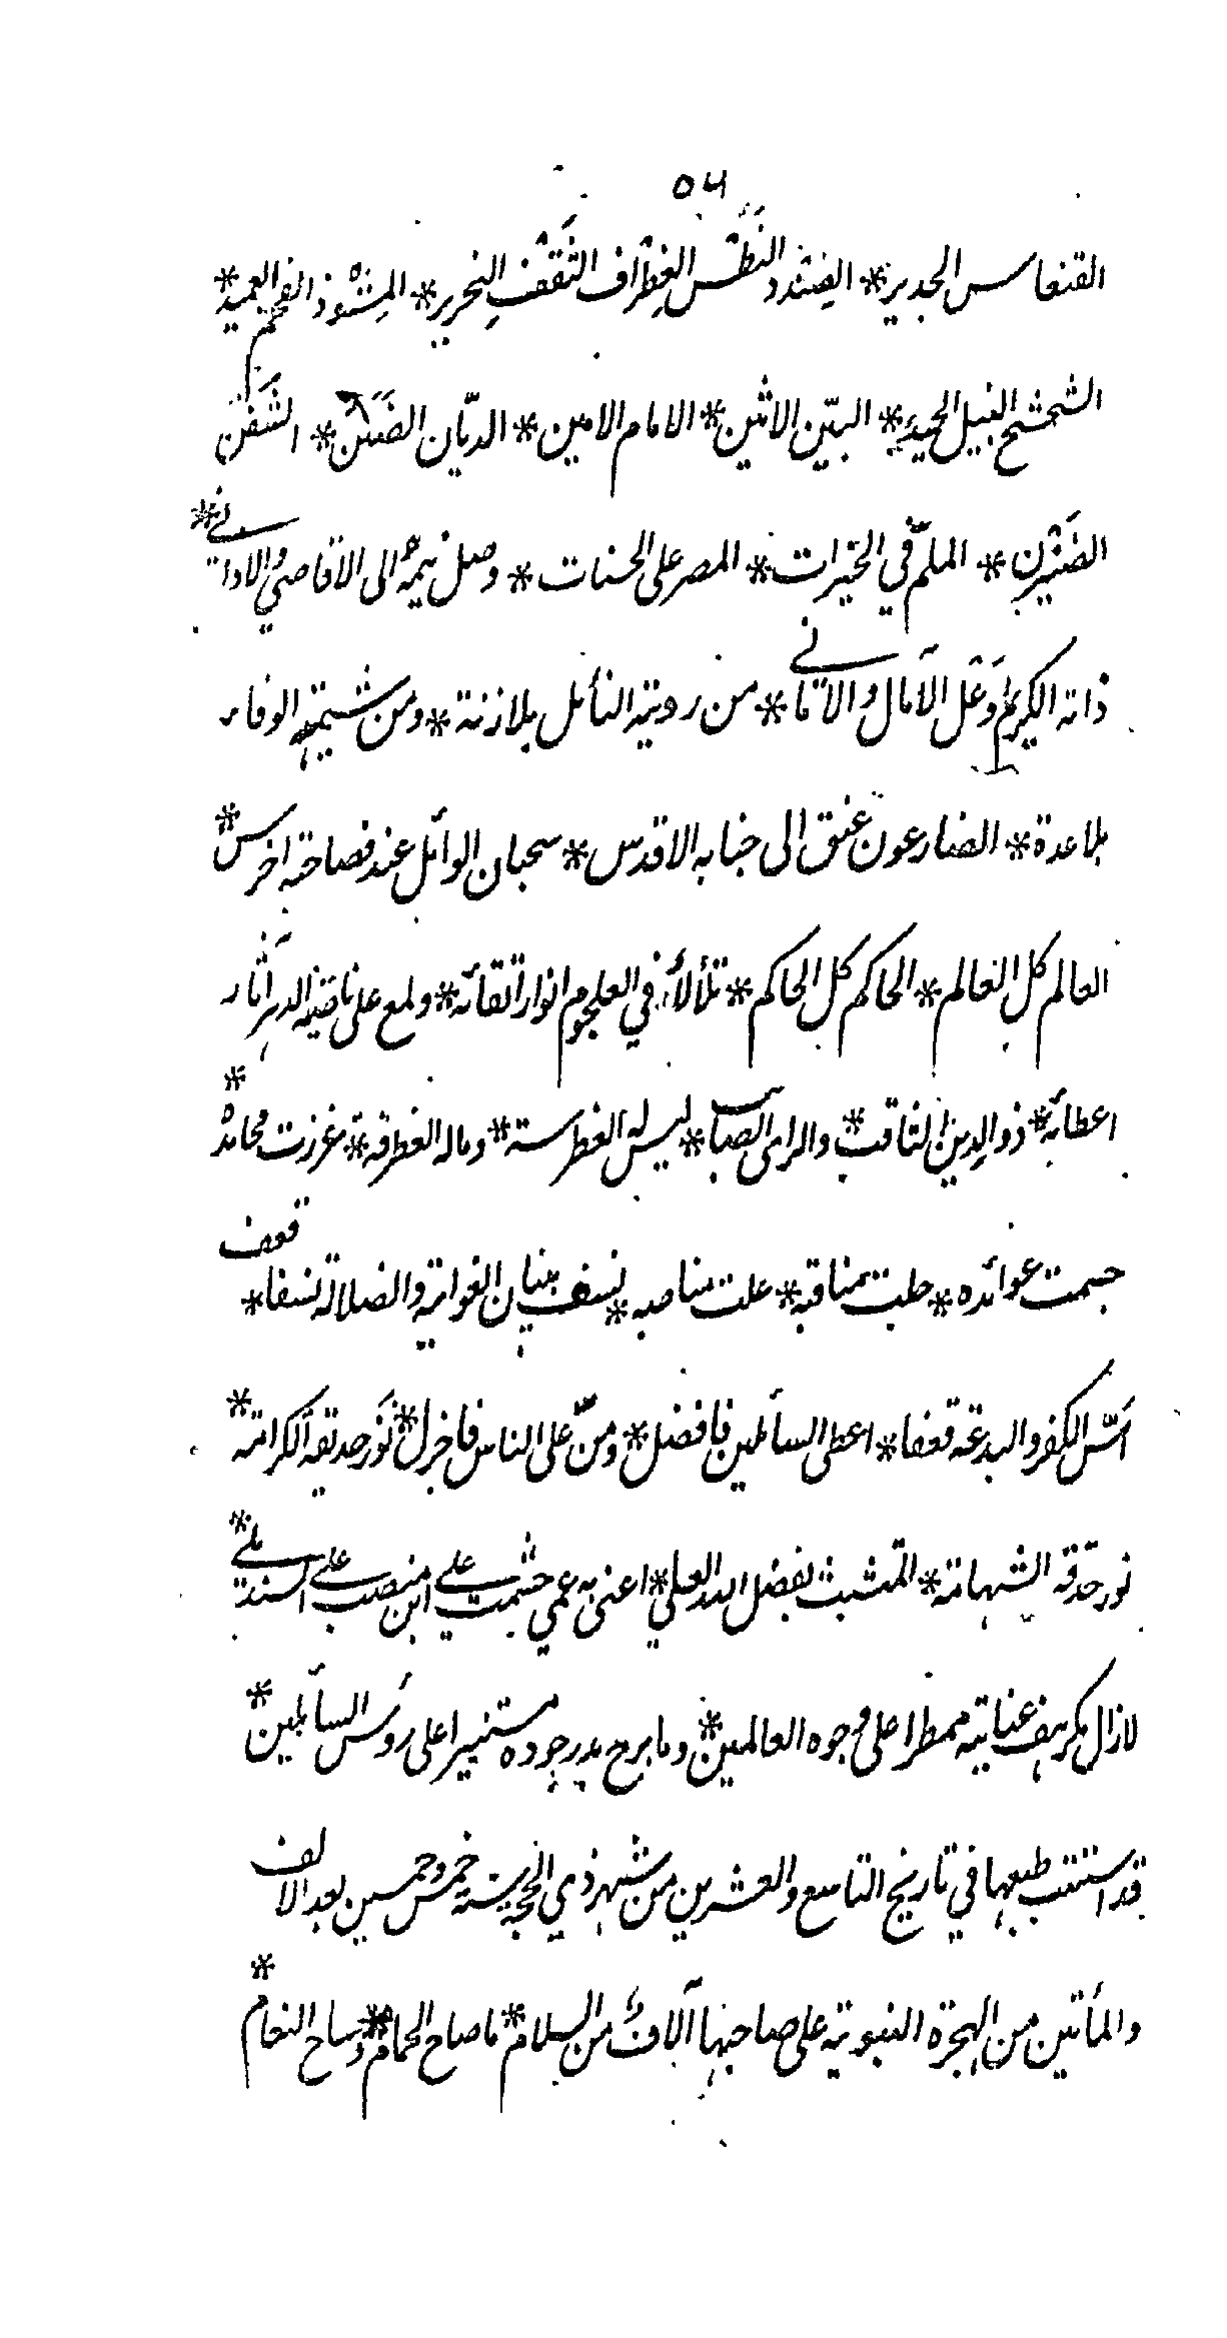 ٥٤
القنعاس الجدير * الضندد النَطْس الغِطْرَاف الثَقَفِ النحرير * المِشْوذ الفخم العميد *
الشحشح النبيل الحميد * البيّن الاثين * الامام الامين * الديّان الضمَن * الشَفْن
الضَيْزن * الملمّ في الخيرات * المصر على الحسنات * وصل نيمه الى الاقاصي والاداني *
ذاته الكريم وَعْل الآمال والامانے * من رويته النائل بلا زنة * ومن شيمته الوفاء
بلا عدة * الضارعون عنق الى جنابه الاقدس * سحبان الوائل عند فصاحته اخرس *
العالم كل العالم * الحاكم كل الحاكم * تلألأ في العلجوم انوار اتقائه * ولمع على ناصية الدهر آثار
اعطائه * ذو الدين الثاقب * والراى الصائب * ليس له الغطرسة * وماله العطرفة * غزرت محامده *
جسمت عوائده * حلت مناقبه * علت مناصبه * نسف بنيان الغواية والضلالة نسفا * قعف
اُسّ الكفر والبدعة قعفا * اعطى السائلين فافضل * ومنّ على الناس فاجزل * نَور حديقة الكرامة *
نور حدقة الشهامة * المتشبث بفضل الله العلي * اعنى به عمي حشمت علي ابن منصب علي السنديلے *
لازال مكرهف عنايته ممطرا على وجوه العالمين * وما برح بدر جوده مستنيرا على رؤس السائلين *
قد استتب طبعها في تاريخ التاسع والعشرين من شهر ذي الحجة سنة خمس وخمسين بعد الالف
والمأتين من الهجرة النبوية على صاحبها آلاف من السلام * ما صاح الحمام * وساح الغمام *